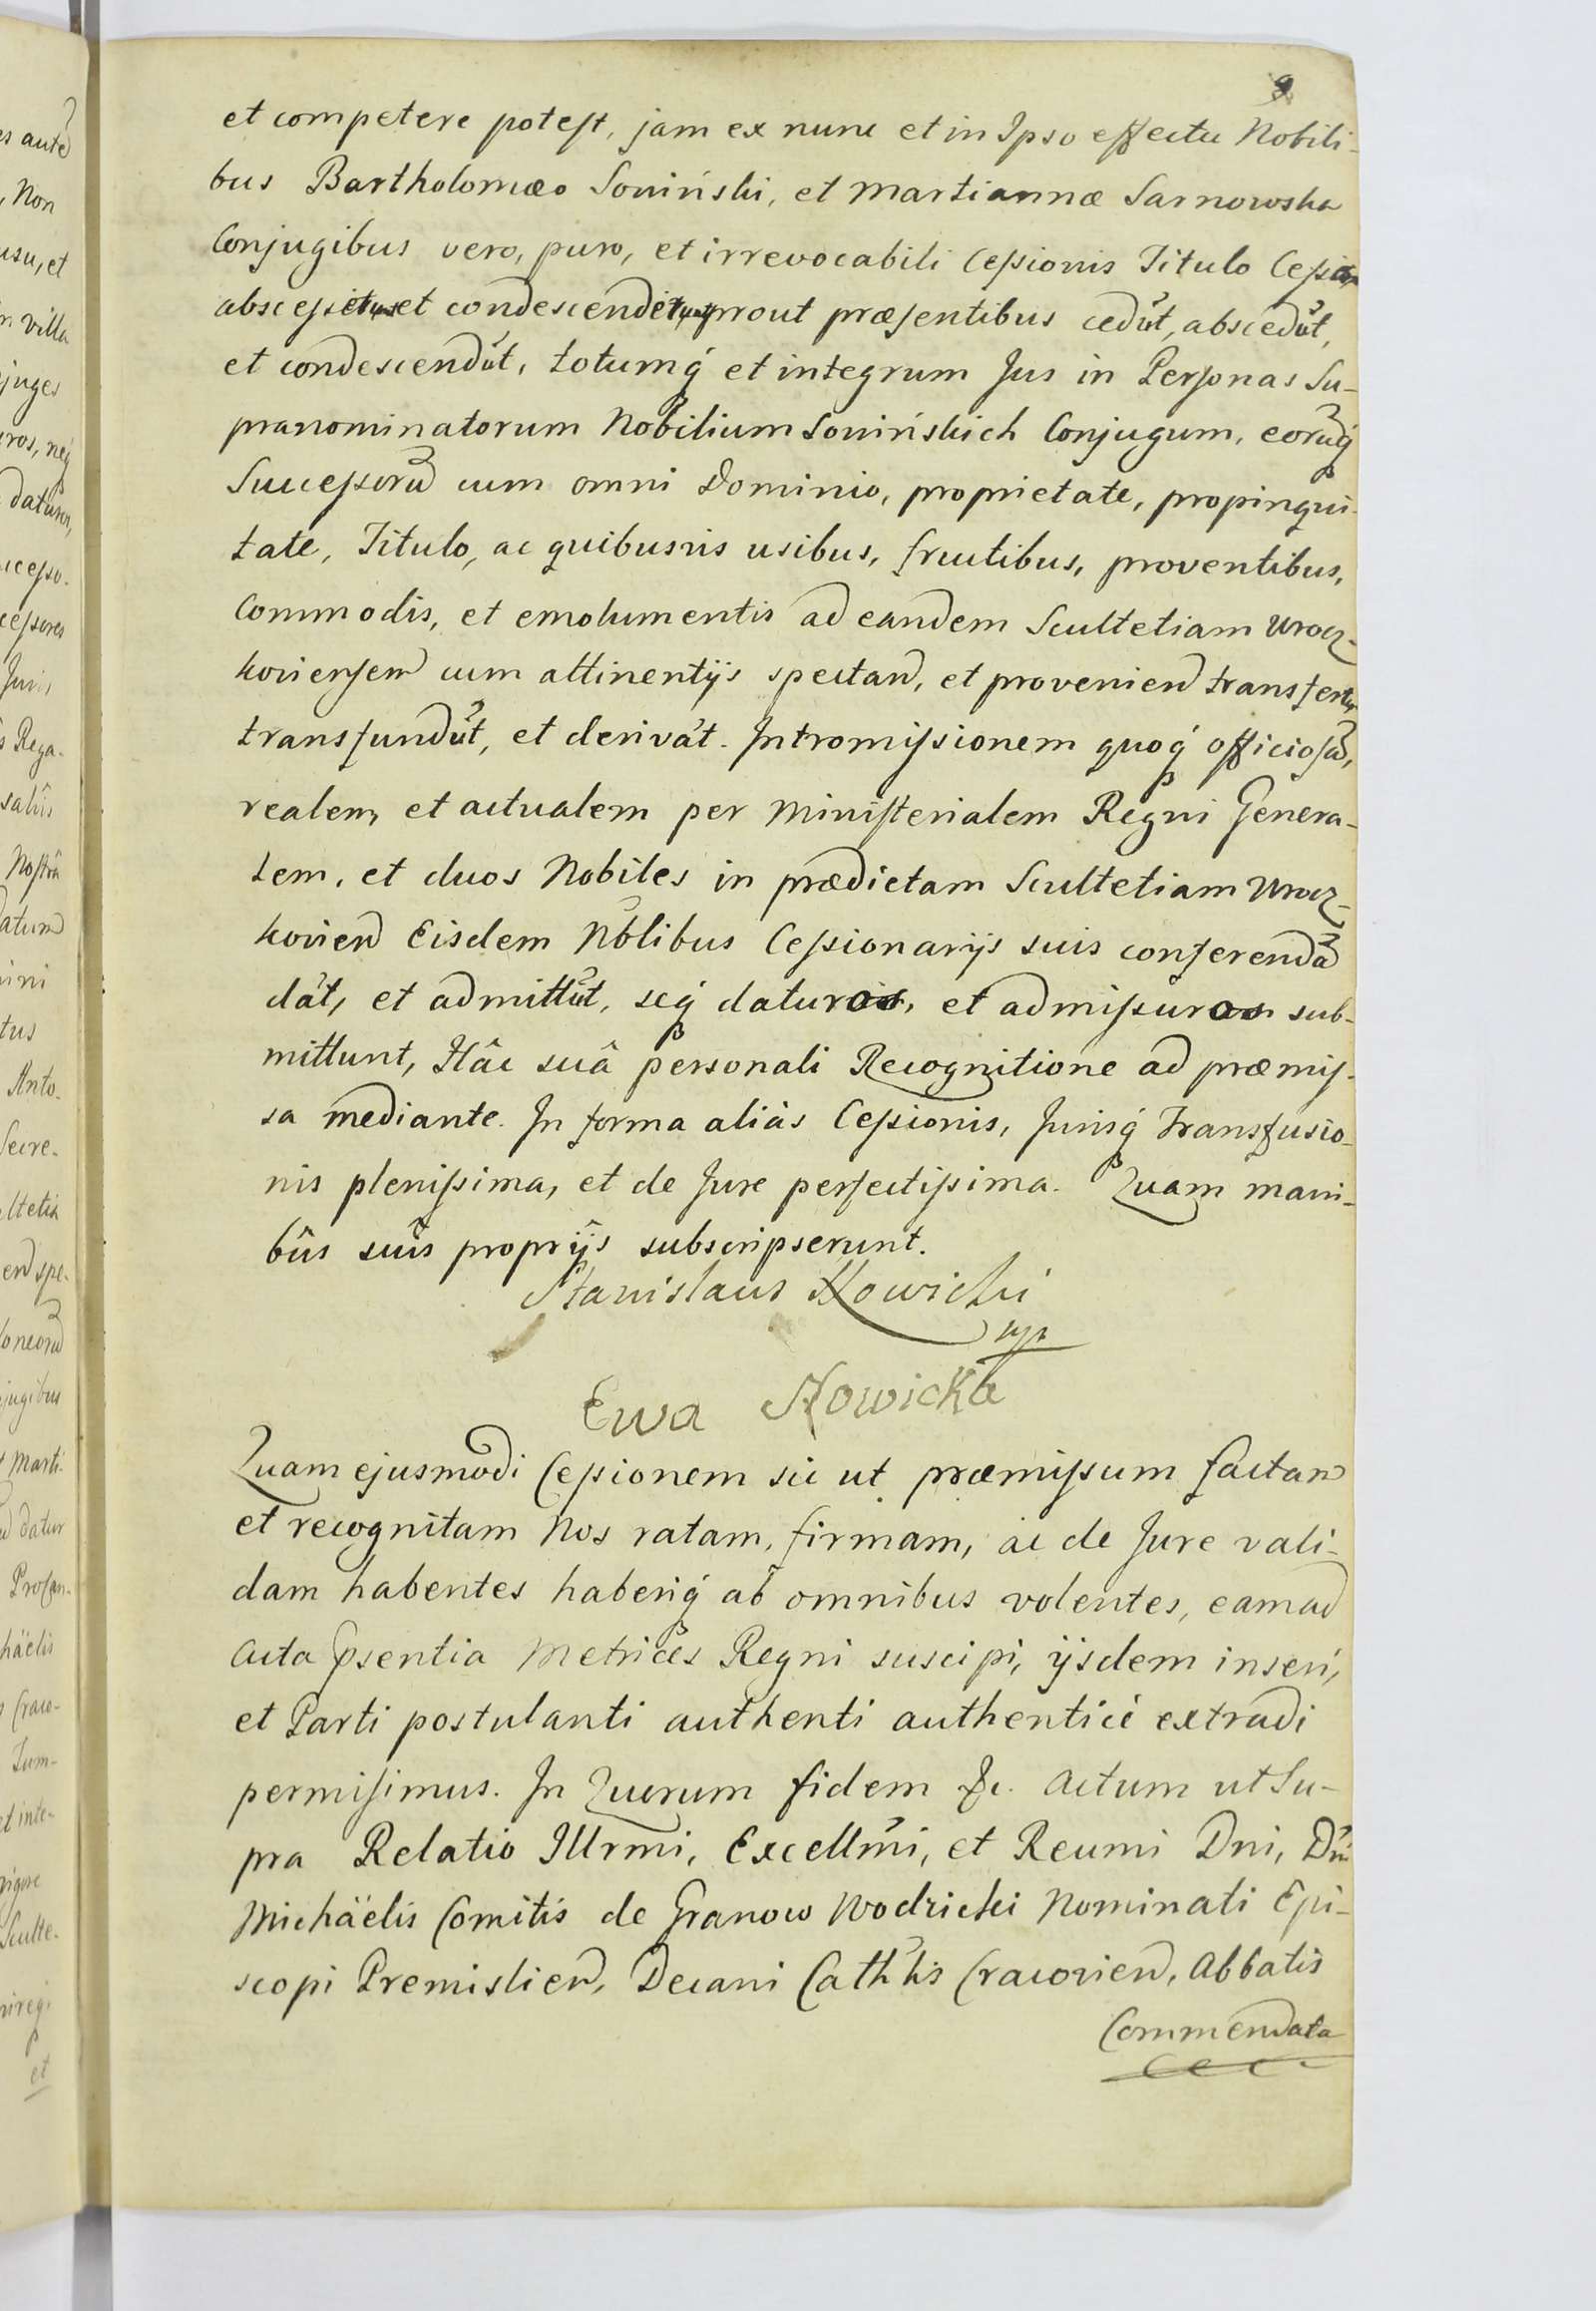 9
et competere potest, jam ex nunc et in Ipso effectu Nobili-
bus Bartholomæo Soviński, et Martiannæ Sarnowska
Conjugibus vero, puro, et irrevocabili Cessionis Titulo
et condescender prout præsentibus cedũt, abscedũt,
et condescendũt, totumq́ et integrum Jus in Personas Su-
pranominatorum Nobilium Sovińskich Conjugum, eorũq́
Successorũ cum omni Dominio, proprietate, propinqui-
tate, Titulo, ac quibusvis usibus, fructibus, proventibus,
Commodis, et emolumentis ad eandem Scultetiam Urocz-
koviensem cum attinentijs spectand, et proveniend
transfundũt, et derivãt. Intromissionem quoq́ officiosã,
realem, et actualem per Ministerialem Regni Genera-
lem, et duos Nobiles in prædictam Scultetiam Urocz-
kovien Eisdem Nõblibus Cessionarijs suis conferendã
dãt, et admittũt, seq́ daturos, et admissuros sub-
mittunt, Hâc suâ personali Recognitione ad præmis-
sa mediante. In forma aliàs Cessionis, Jurisq́ Transfusio-
nis plenissima, et de Jure perfectissima. Quam mani-
bûs suîs proprijs subscripserunt.
Stanislaus Nowicki
mp
Ewa Nowicka
Quam ejusmodi Cessionem sic ut præmissum factam
et recognitam Nos ratam, firmam, ac de Jure vali-
dam habentes haberiq́ ab omnibus volentes, eam ad
Acta psentia Metrices Regni suscipi, ijsdem inseri,
et Parti postulanti authenti authenticè extradi
permisimus. In Quorum fidem &c. Actum ut Su-
pra Relatio Illrmi, Excellm̃i, et Reumi Dni, Dñi
Michäelis Comitis de Granow Wodzicki Nominati Epi-
scopi Premislien, Decani Cathlis Cracovien, Abbatis
Commendata